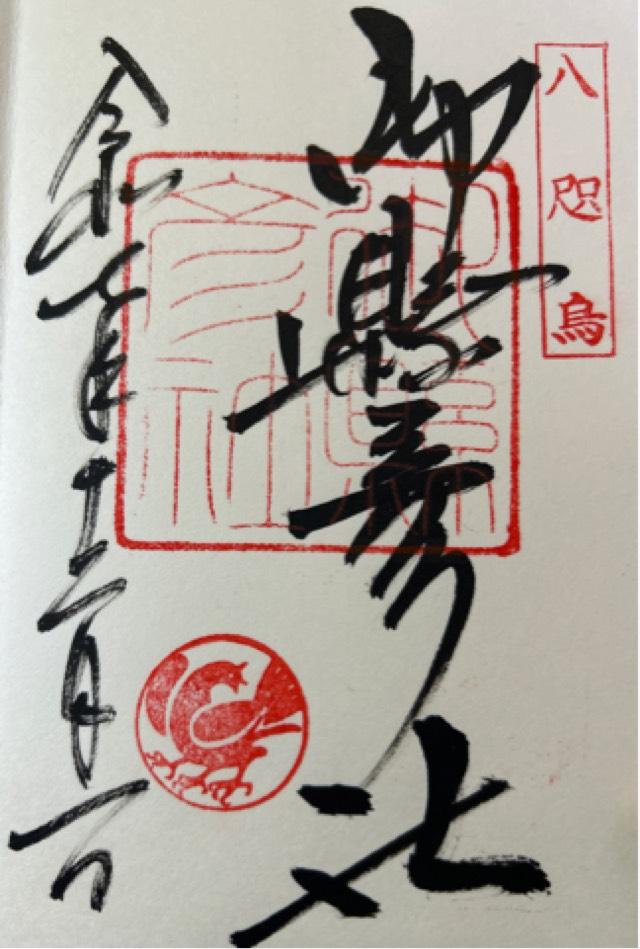 八咫烏
御縣彦社
御縣
彦社
令和七年十二月一日